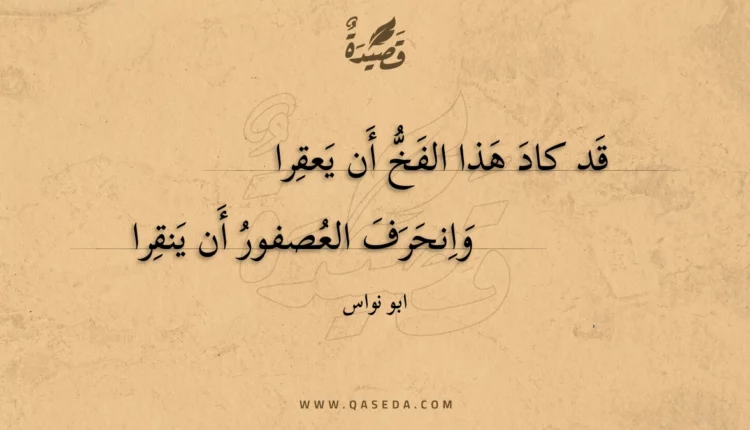 قَصِيْدَةٌ
قَد كادَ هَذا الفَخُّ أَن يَعقِرا
وَاِنحَرَفَ العُصفورُ أَن يَنقِرا
ابو نواس
WWW.QASEDA.COM